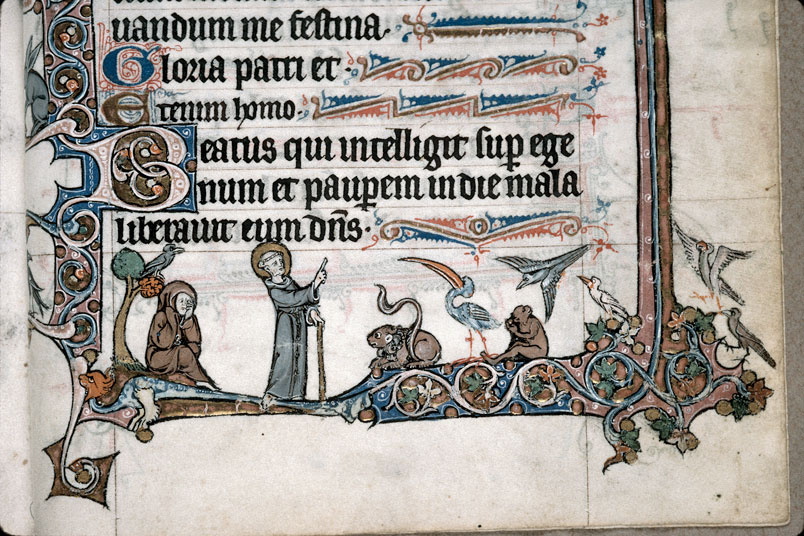 uandum me festina
Gloria patri et
Etenim homo
Beatus qui intelligit sup ege
num et paupem in die mala
liberauit eum dns